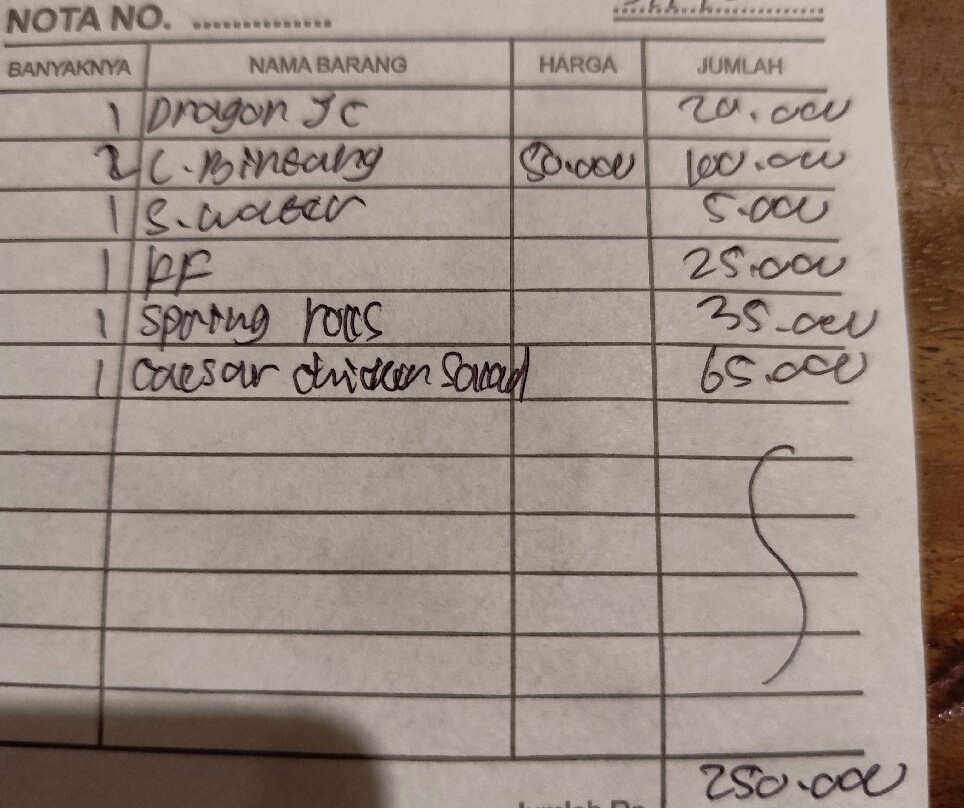 NOTA NO. ..............
BANYAKNYA NAMA BARANG HARGA JUMLAH
1 Dragon JC 20.000
2 C. Bintang 50.000 100.000
1 S. water 5.000
1 FF 25.000
1 Spring rolls 35.000
1 Caesar chicken Salad 65.000
250.000
Jumlah Rp